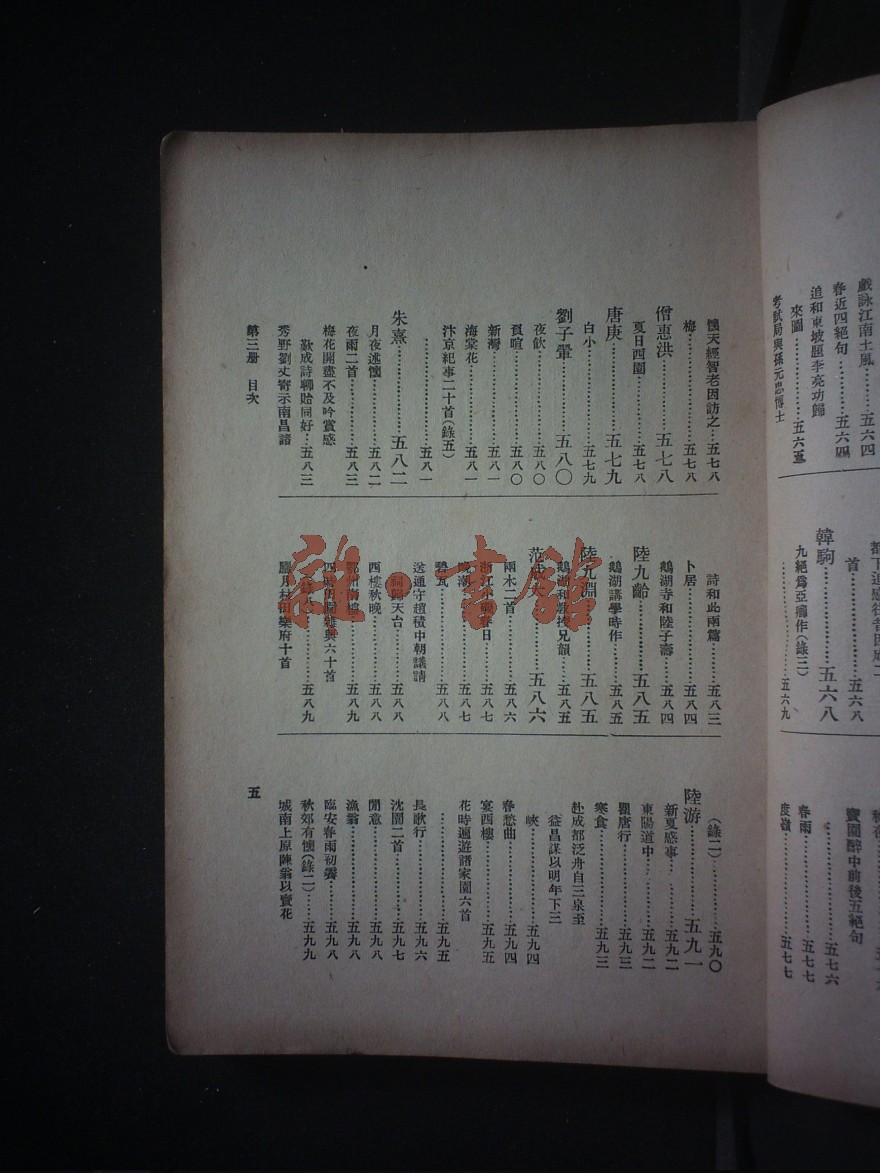 戲詠江南土風…………五六四
春近四絕句…………五六四
追和東坡題李亮功歸
來圖…………五六五
考試局與孫元忠博士
首…………五六八
韓駒…………五六八
九絕爲亞卿作(錄三)
…………五六九
寶園醉中前後五絕句
…………五七六
春雨…………五七七
度嶺…………五七七
懷天經智老因訪之…五七八
梅…………五七八
僧惠洪…………五七八
夏日西園…………五七八
唐庚…………五七九
白小…………五七九
劉子翬…………五八〇
夜飲…………五八〇
孤喧…………五八〇
新灣…………五八一
海棠花…………五八一
汴京紀事二十首(錄五)
…………五八一
朱熹…………五八二
月夜述懷…………五八二
夜雨二首…………五八三
梅花開盡不及吟賞感
歎成詩聊貽同好…五八三
秀野劉丈寄示南昌諸
詩和此兩篇…………五八三
卜居…………五八四
鵝湖寺和陸子壽…五八四
陸九齡…………五八五
鵝湖講學時作…………五八五
陸九淵…………五八五
鵝湖和教授兄韻…五八五
范成大…………五八六
兩木二首…………五八六
浙江小磯春日…五八七
晚潮…………五八七
碧瓦…………五八八
送通守趙積中朝議請
祠歸天台…………五八八
西樓秋晚…………五八八
鄂州南樓…………五八九
四時田園雜興六十首
…………五八九
臘月村田樂府十首
(錄二)…………五九〇
陸游…………五九一
新夏感事…………五九二
東陽道中…………五九二
瞿唐行…………五九三
寒食…………五九三
赴成都泛舟自三泉至
益昌謀以明年下三
峽…………五九四
春愁曲…………五九四
宴西樓…………五九五
花時遍遊諸家園六首
…………五九五
長歌行…………五九六
沈園二首…………五九七
閒意…………五九八
漁翁…………五九八
臨安春雨初霽…………五九八
秋郊有懷(錄二)…五九九
城南上原陳翁以賣花
第三册 目次
五
雜·書館